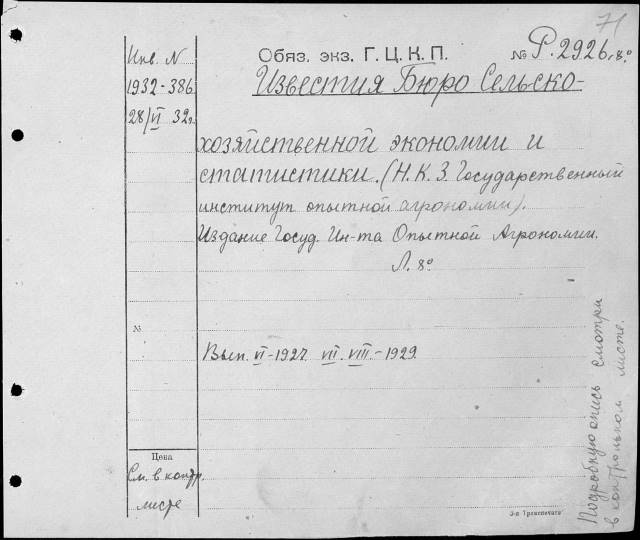 71
Инв. N
1932-386
28/VI 32г.
Обяз. экз. Г. Ц. К. П.
№ Р. 2926. 8.°
Известия Бюро Сельско-
хозяйственной экономии и
статистики. (Н. К. З. Государственный
институт опытной агрономии).
Издание Госуд. Ин-та Опытной Агрономии.
Л. 8°
№
Вып. VI-1927. VII. VIII.-1929.
Цена
См. в контр.
листе
Подробную опись смотри
в контрольном листе.
3-я Транспечать